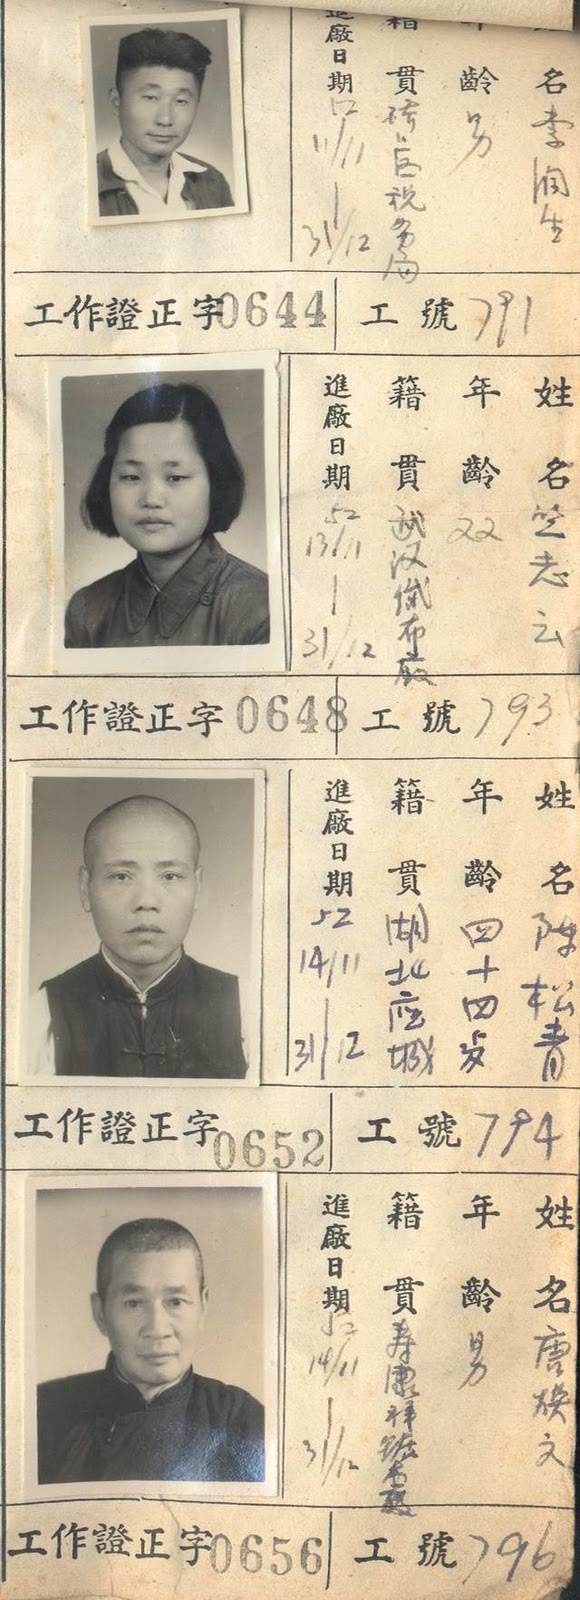 姓名李润生
年齡男
籍貫硚口区税务局
進廠日期52 11/11 | 31/12
工作證正字0644 工號791
姓名竺志云
年齡
籍貫武汉布廠
進廠日期52 13/11 | 31/12
工作證正字0648 工號793
姓名陈松青
年齡四十四岁
籍貫湖北应城
進廠日期52 14/11 | 31/12
工作證正字0652 工號794
姓名唐焕文
年齡男
籍貫寿康祥锯木廠
進廠日期52 14/11 | 31/12
工作證正字0656 工號796